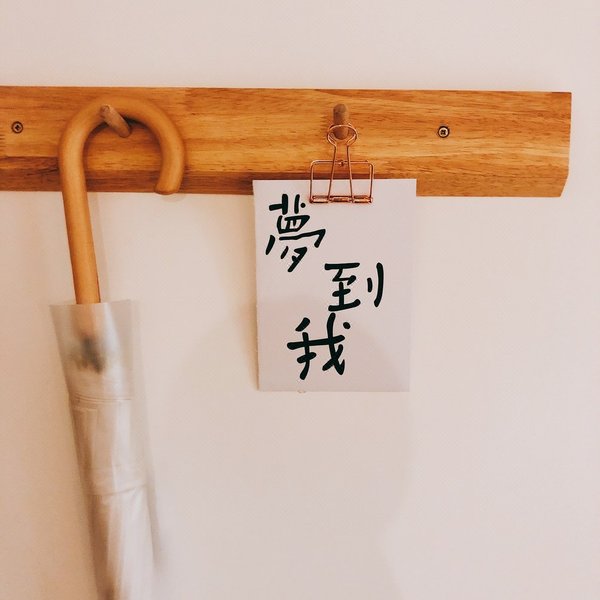 夢
到
我